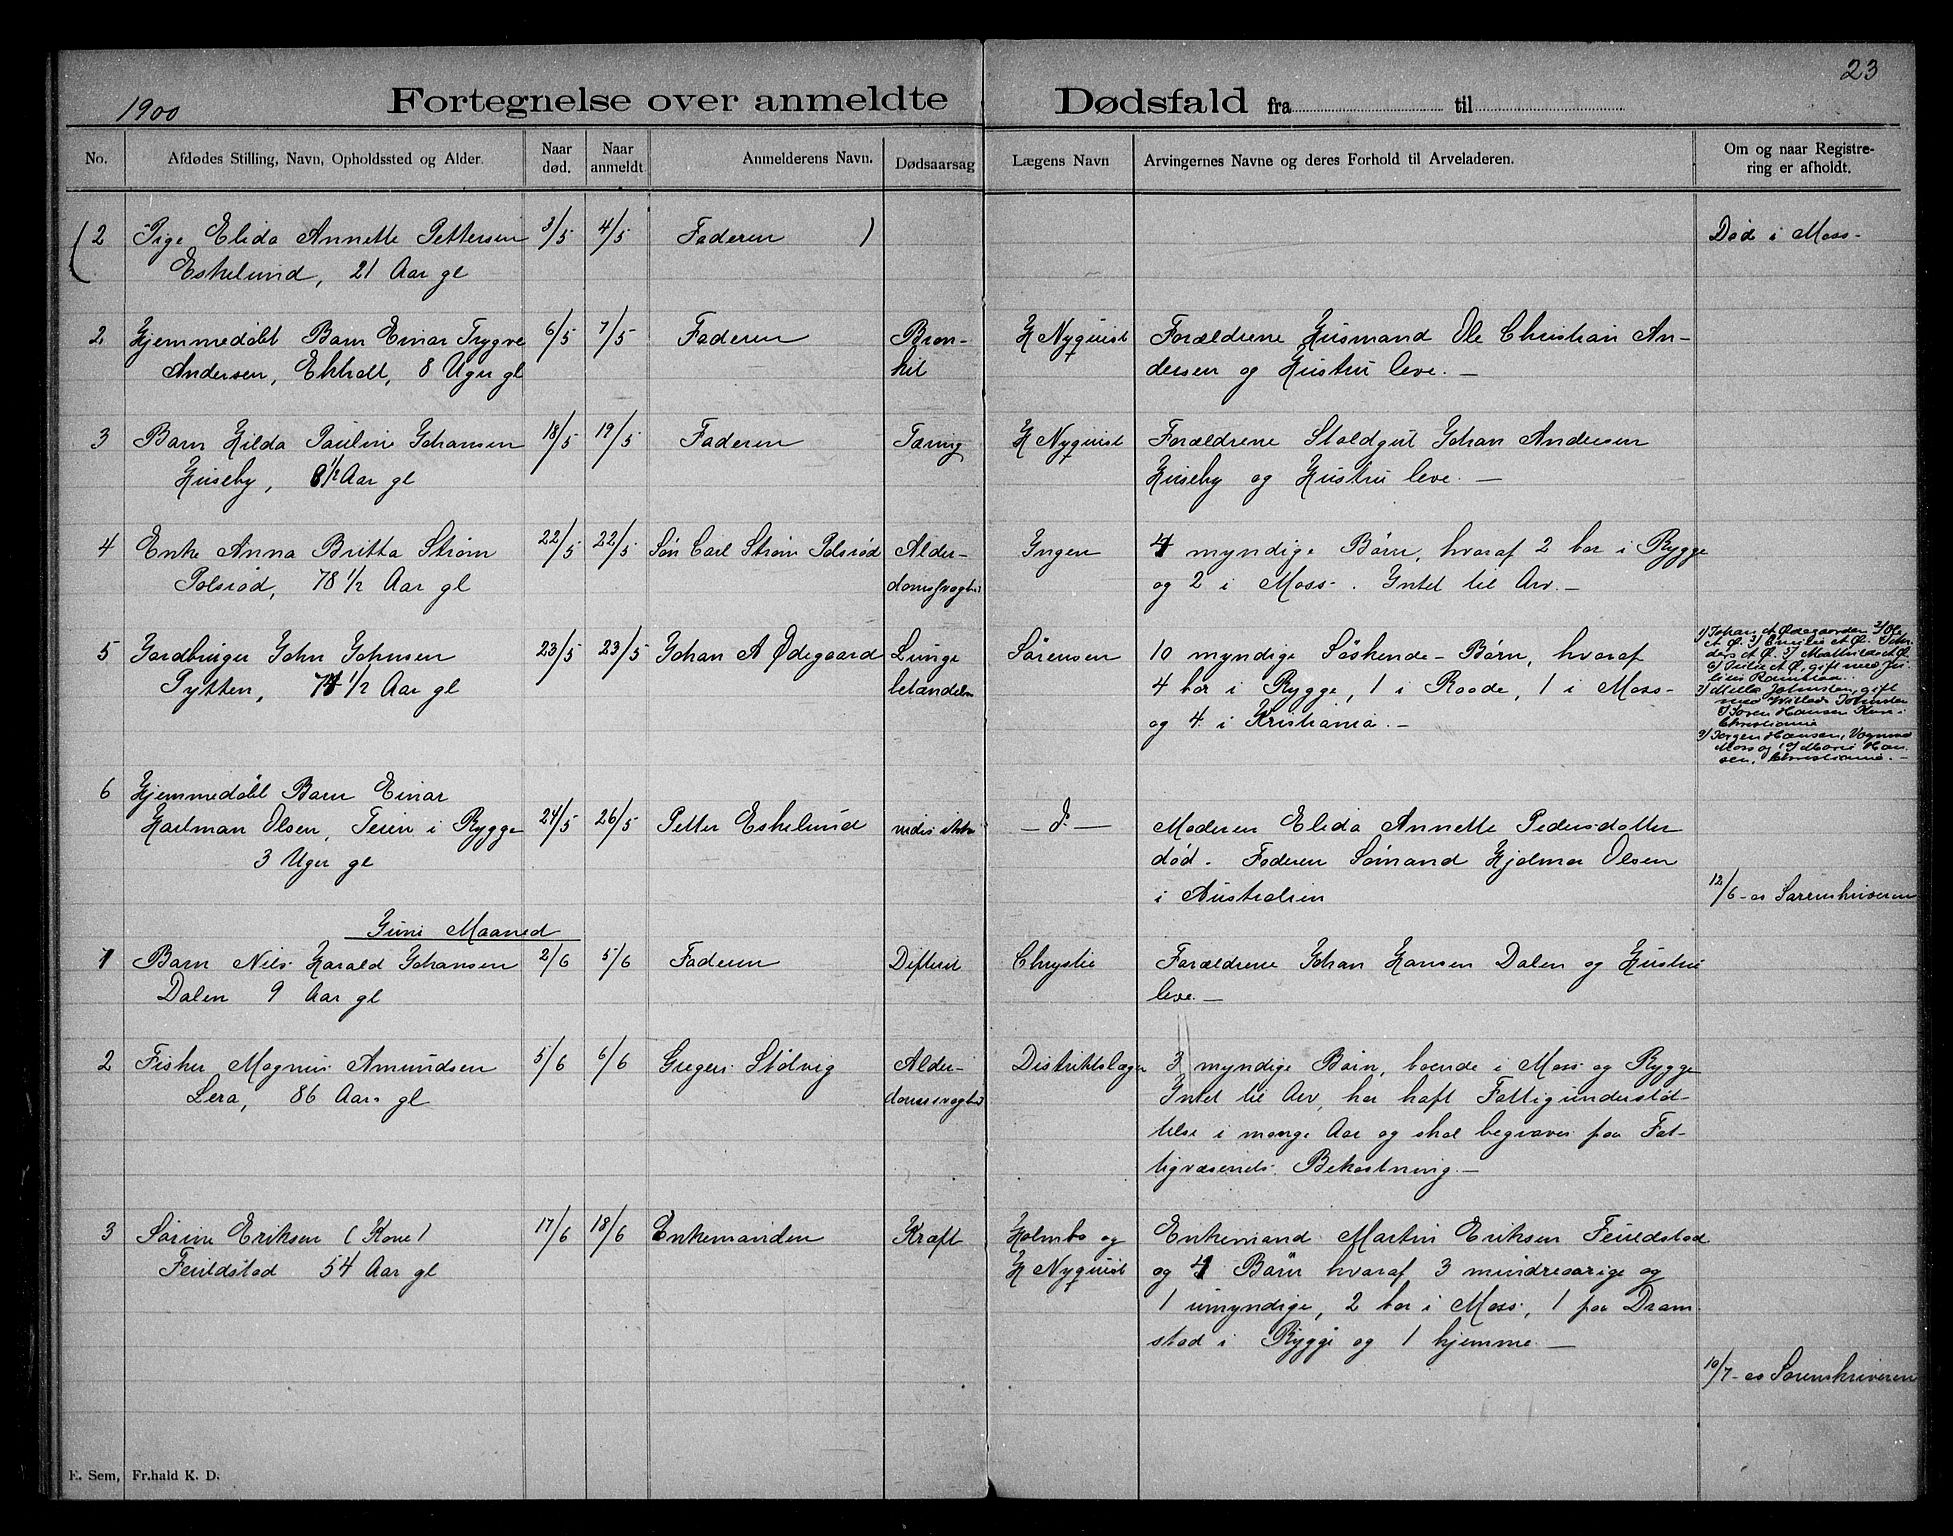 23
1900 Fortegnelse over anmeldte Dødsfald fra til
No. Afdødes Stilling, Navn, Opholdssted og Alder. Naar død. Naar anmeldt Anmelderens Navn. Dødsaarsag Lægens Navn Arvingernes Navne og deres Forhold til Arveladeren. Om og naar Registrering er afholdt.
(2 Pige Elida Annette Pettersen 3/5 4/5 Faderen ) Død i Moss -
Eskelund, 21 Aar gl
2 Hjemmedøbt Barn Einar Trygve 6/5 7/5 Faderen Bron- H Nyquist Forældrene Husmand Ole Christian An-
Andersen, Ekholt, 8 Uger gl kit dersen og Hustru leve. —
3 Barn Hilda Pauline Johansen 18/5 19/5 Faderen Tæring H Nyquist Forældrene Staldgut Johan Andersen
Huseby, 8 1/2 Aar gl Huseby og Hustru leve. —
4 Enke Anna Britta Strøm 22/5 22/5 Søn Carl Strøm Polsrød Alder- Ingen 4 myndige Børn, hvoraf 2 bor i Rygge
Polsrød, 78 1/2 Aar gl domssvaghed og 2 i Moss -. Intet til Arv. —
5 Gardbruger John Johnsen 23/5 23/5 Johan A Ødegaard Lunge Sørensen 10 myndige Søskende - Børn, hvoraf
Pytten, 74 1/2 Aar gl betændelse 4 bor i Rygge, 1 i Raade, 1 i Moss -
og 4 i Kristiania. —
1) Johan A Ødegaarden 2) Ole
A Ø. 3) Emilie A Ø.
5) Mathilde A Ø.
6) Julie A Ø, gift med Ju-
lius
7) Milla Johnsen, gift
med Willads Johnsen
Hansen
Christiania
9) Jørgen Hansen, Vognmd
Moss og 10) Marie Han-
sen, Christiania. —
6 Hjemmedøbt Barn Einar
Hartman Olsen, Teien i Rygge 24/5 26/5 Petter Eskelund vides ikke — d. — Moderen Elida Annette Pedersdatter
3 Uger gl død. Faderen Sømand Hjalmar Olsen
i Australien 12/6 - 00 Sorenskriveren
Juni Maaned
1 Barn Nils Harald Johansen 2/6 5/6 Faderen Difterit Chrystie Forældrene Johan Hansen Dalen og Hustru
Dalen 9 Aar gl leve. —
2 Fisker Magnus Amundsen 5/6 6/6 Gregers Stølvig Alder- Distriktslægen 3 myndige Børn, boende i Moss og Rygge
Lera, 86 Aar gl domssvaghed Intet til Arv, har haft Fattigunderstøt-
telse i mange Aar og skal begraves paa Fat-
tigvæsenets Bekostning. —
3 Sørine Eriksen (Kone) 17/6 18/6 Enkemanden Kræft Holmbo og Enkemand Martin Eriksen Feuldstad
Feuldstad 54 Aar gl H Nyquist og 4 Børn hvoraf 3 mindreaarige og
1 umyndige, 2 bor i Moss, 1 paa Dram-
stad i Rygge og 1 hjemme. —
10/7 - 00 Sorenskriveren
E. Sem, Fr.hald K. D.